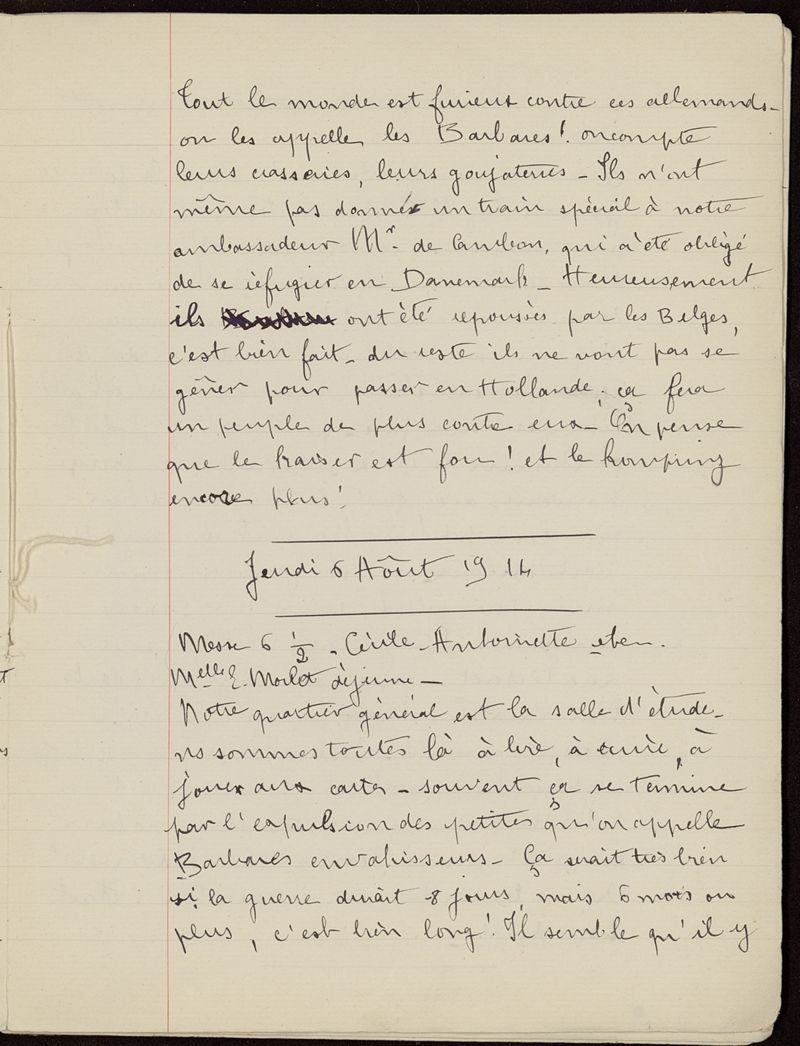 Tout le monde est furieux contre ces allemands -
on les appelle les Barbares ! on compte
leurs crasseries, leurs goujateries - Ils n'ont
même pas donné un train spécial à notre
ambassadeur Mr. de Cambon, qui a été obligé
de se réfugier en Danemark - Heureusement
ils ont été repoussés par les Belges,
c'est bien fait - du reste ils ne vont pas se
gêner pour passer en Hollande, ça fera
un peuple de plus contre eux - On pense
que le kaiser est fou ! et le kronprinz
encore plus !
Jeudi 6 Aôut 1914
Messe 6 1/2 - Cécile - Antoinette
Melle E. Morlet déjeune -
Notre quartier général est la salle d'étude -
ns sommes toutes là à lire, à écrire, à
jouer aux cartes - souvent ça se termine
par l'expulsion des petites qu'on appelle
Barbares envahisseurs - Ça serait très bien
si la guerre durait 8 jours, mais 6 mois ou
plus, c'est bien long ! Il semble qu'il y